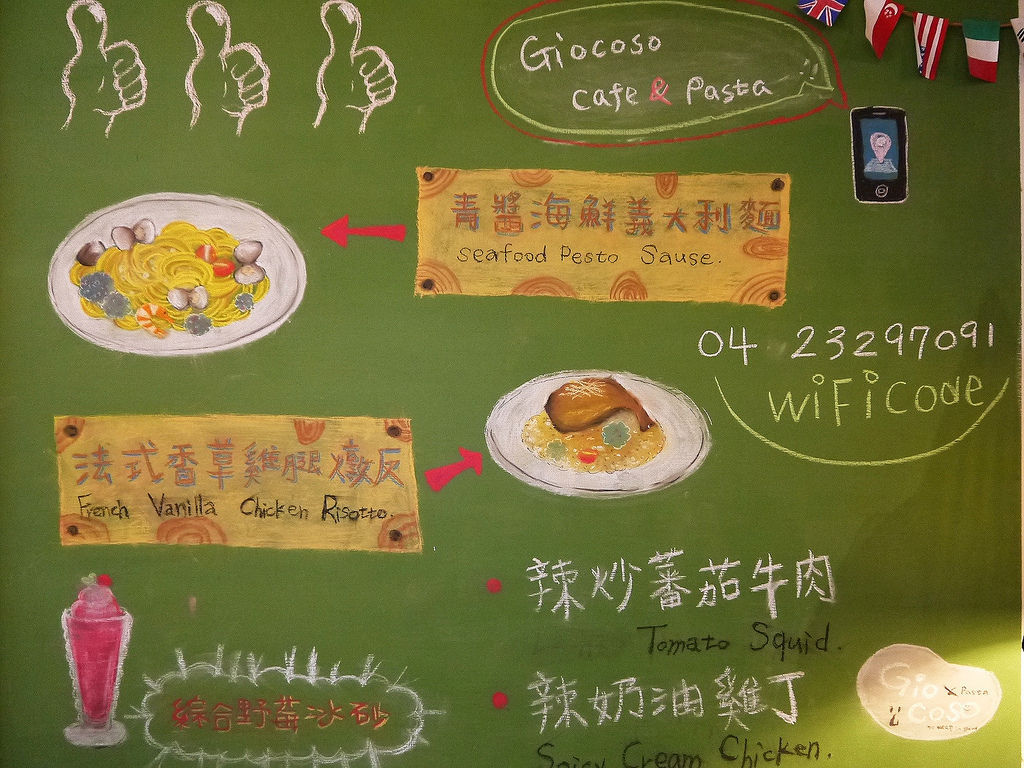 Giocoso
cafe & Pasta
青醬海鮮義大利麵
seafood Pesto Sause.
04 23297091
WiFi code
法式香草雞腿燉反
French Vanilla Chicken Risotto.
辣炒蕃茄牛肉
Tomato Squid.
綜合野莓冰砂
辣奶油雞丁
Spicy Cream Chicken.
Gio x Pasta
coso